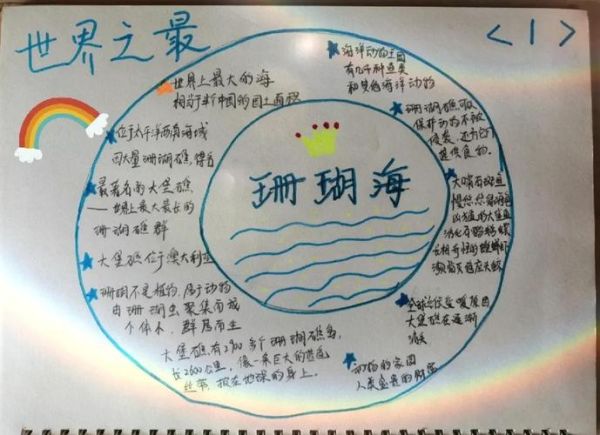 世界之最
<1>
珊瑚海
世界上最大的海
相当于半个中国的国土面积
位于太平洋西南海域
因大量珊瑚礁得名
最著名的大堡礁
——世界上最大最长的
珊瑚礁群
大堡礁位于澳大利亚
珊瑚不是植物，属于动物
由珊瑚虫聚集而成
个体小，群居而生
大堡礁有2900多个珊瑚礁岛，
长2600公里，像一条巨大的
丝带，披在地球的身上。
海洋动物王国
有几千种鱼类
和其他海洋动物
珊瑚礁可以
保护动物不被
侵袭，还为它们
提供食物。
大嘴
慢悠悠
海
全球气候变暖原因
大堡礁在逐渐
消失
动物的家园
人类宝贵的财富